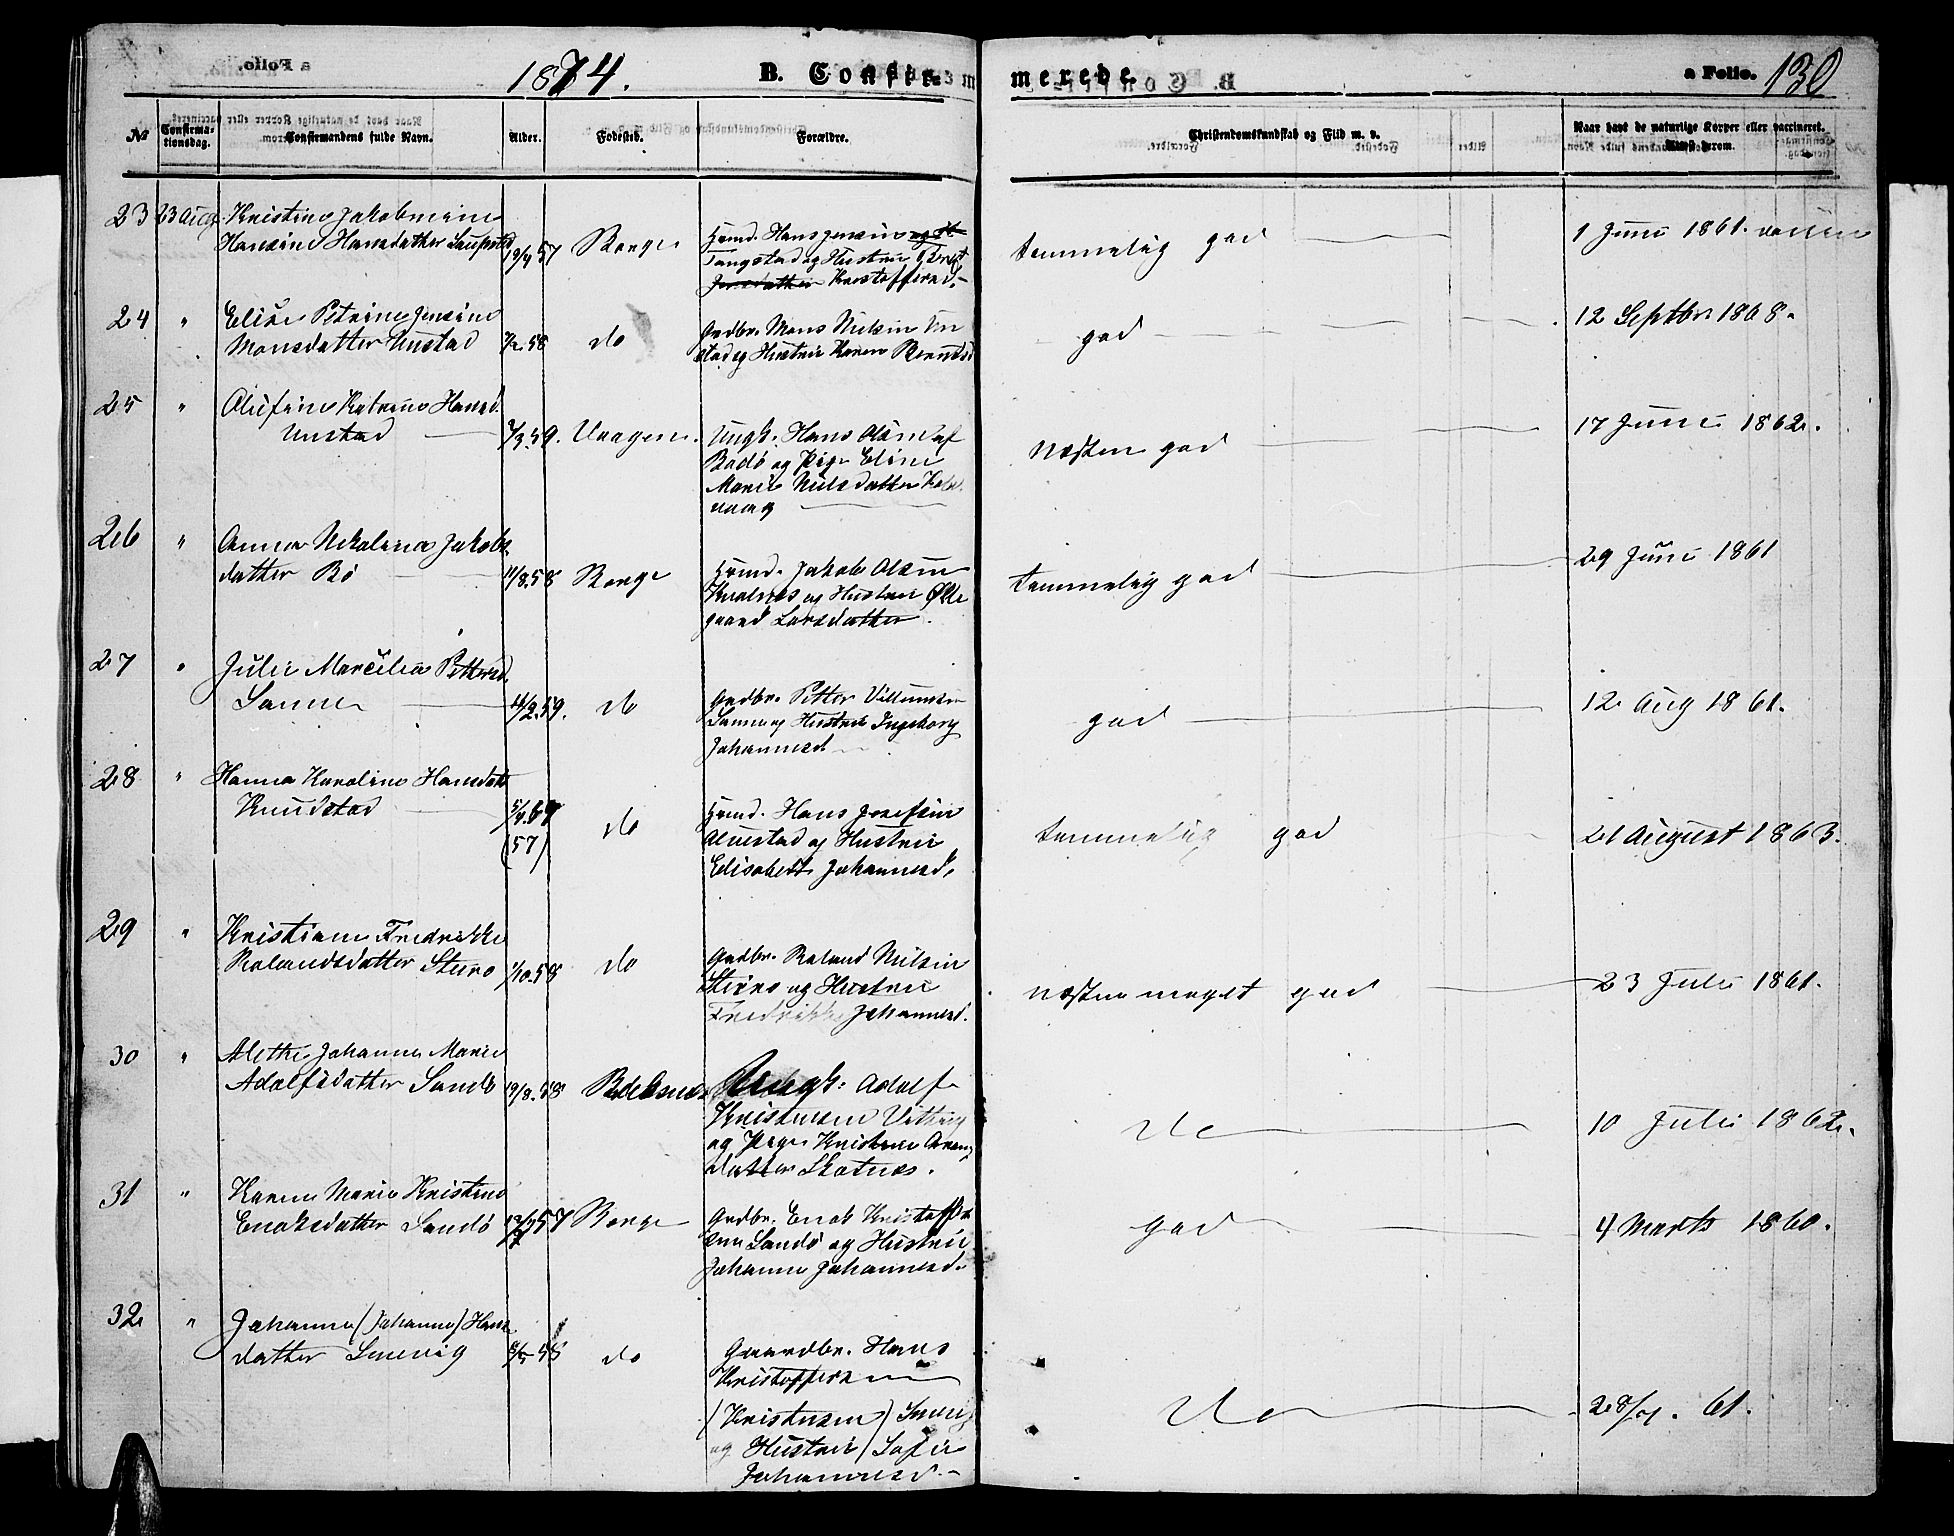 1874. B. Confirmerede. a Folio. 130
No Confirmationsdag. Confirmandens fulde Navn. Alder. Fødested. Forældre. Christendomskundskab og Flid m. v. Naar havt de naturlige Kopper eller vaccineret. Attest derom.
23 23 Aug Kristine Jakobmine
Hansine Hansdatter 19/4 57 Borge
Hmd. Hans Jensen
Tangstad og Hustru Beret
Kristoffersd.
temmelig god
1 Juni 1861.
24 " Elise Petrine Jensine
Monsdatter Unstad 7/2.58 do
Grdbr. Mons Nilsen Un
stad og Hustru Karen Berndtsd
god
12 Septbr 1868.
25 " Olufine Katrine Hansd.
Unstad 7/3.59. Vaagene.
Ungk. Hans Olsen af
Bodö og Pige Eline
Marie Nilsdatter
vaag
Næsten god
17 Juni 1862.
26 " Anna Nikolina Jakobs
datter Bö 11/8.58 Borge
Hmd. Jakob Olsen
og Hustru Olle
gaard Larsdatter.
temmelig god
29 Juni 1861
27 " Julie Marcelia Pettersd.
Sanne 14/2.59. do
Grdbr. Petter Villumsen
Sanne og Hustru Ingeborg
Johannesd
god
12 Aug 1861.
28 " Hanna Karoline Hansdatt
Knudstad
(57) do
Hmd. Hans Josefsen
Alnestad og Hustru
Elisabeth Johannesd.
temmelig god
21 August 1863.
29 " Kristiane Fredrikke
Rolandsdatter Steiro 1/10.58 do
Grdbr. Roland Nilsen
Steiro og Hustru
Fredrikke Johannesd.
næsten meget god
23 Juli 1861.
30 " Alethe Johanna Marie
Adolfsdatter Sandö 19/8.58 Buksnes
Ungk. Adolf
Kristensen
og Pige Kristine
datter Skotnes.
do
10 Juli 1862.
31 " Karen Marie Kristine
Enoksdatter Sandö 57 Borge
Grdbr. Enok Kristoffer
sen Sandö og Hustru
Johanna Johannesd.
god
4 Marts 1860.
32 " Johanna (Johanne) Hans
datter Smevig 58 do
Gaardbr. Hans
Kristoffersen
(Kristensen) Smevig
og Hustru (Sofie
Johannesd.
do
28/7. 61.